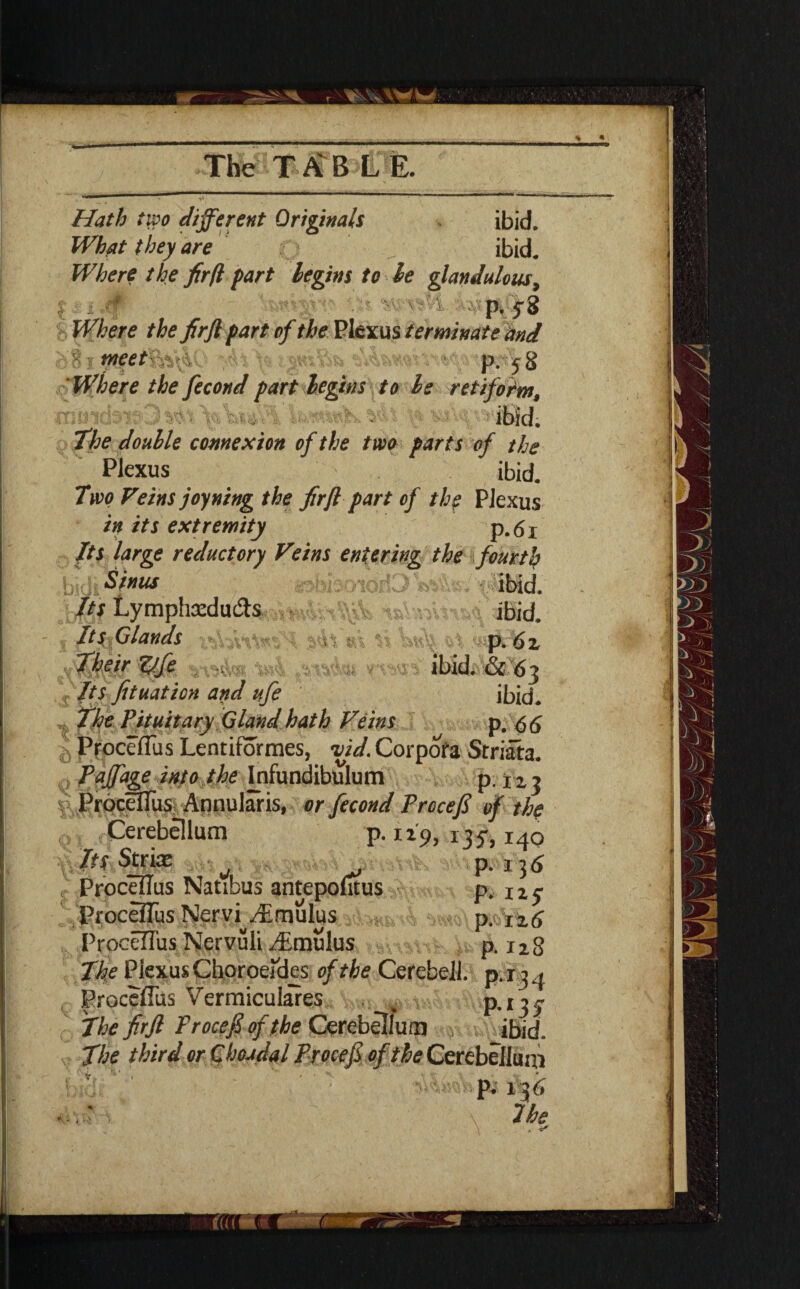 The TABLE.
Hath two different Originals ibid.
What they are ibid.
Where the firſt part begins to be glandulous,
p. 58
Where the firſt part of the Plexus terminate and
meet p. 58
Where the ſecond part begins to be retiform,
ibid.
The double connexion of the two parts of the
Plexus ibid.
Two Veins joyning the firſt part of the Plexus
in its extremity p. 61
Its large reductory Veins entering the fourth
Sinus ibid.
Its Lymphæducts ibid.
Its Glands p. 62
Their Uſe ibid. & 63
Its ſituation and uſe ibid.
The Pituitary Gland hath Veins p. 66
Proceſſus Lentiformes, vid. Corpora Striata.
Paſſage into the Infundibulum p. 123
Proceſſus Annularis, or ſecond Proceſs of the
Cerebellum p. 129, 135, 140
Its Striæ p. 136
Proceſſus Natibus antepoſitus p. 125
Proceſſus Nervi Æmulus p. 126
Proceſſus Nervuli Æmulus p. 128
The Plexus Choroeides of the Cerebell. p. 134
Proceſſus Vermiculares p. 135
The firſt Proceſs of the Cerebellum ibid.
The third or Chordal Proceſs of the Cerebellum
p. 136
The